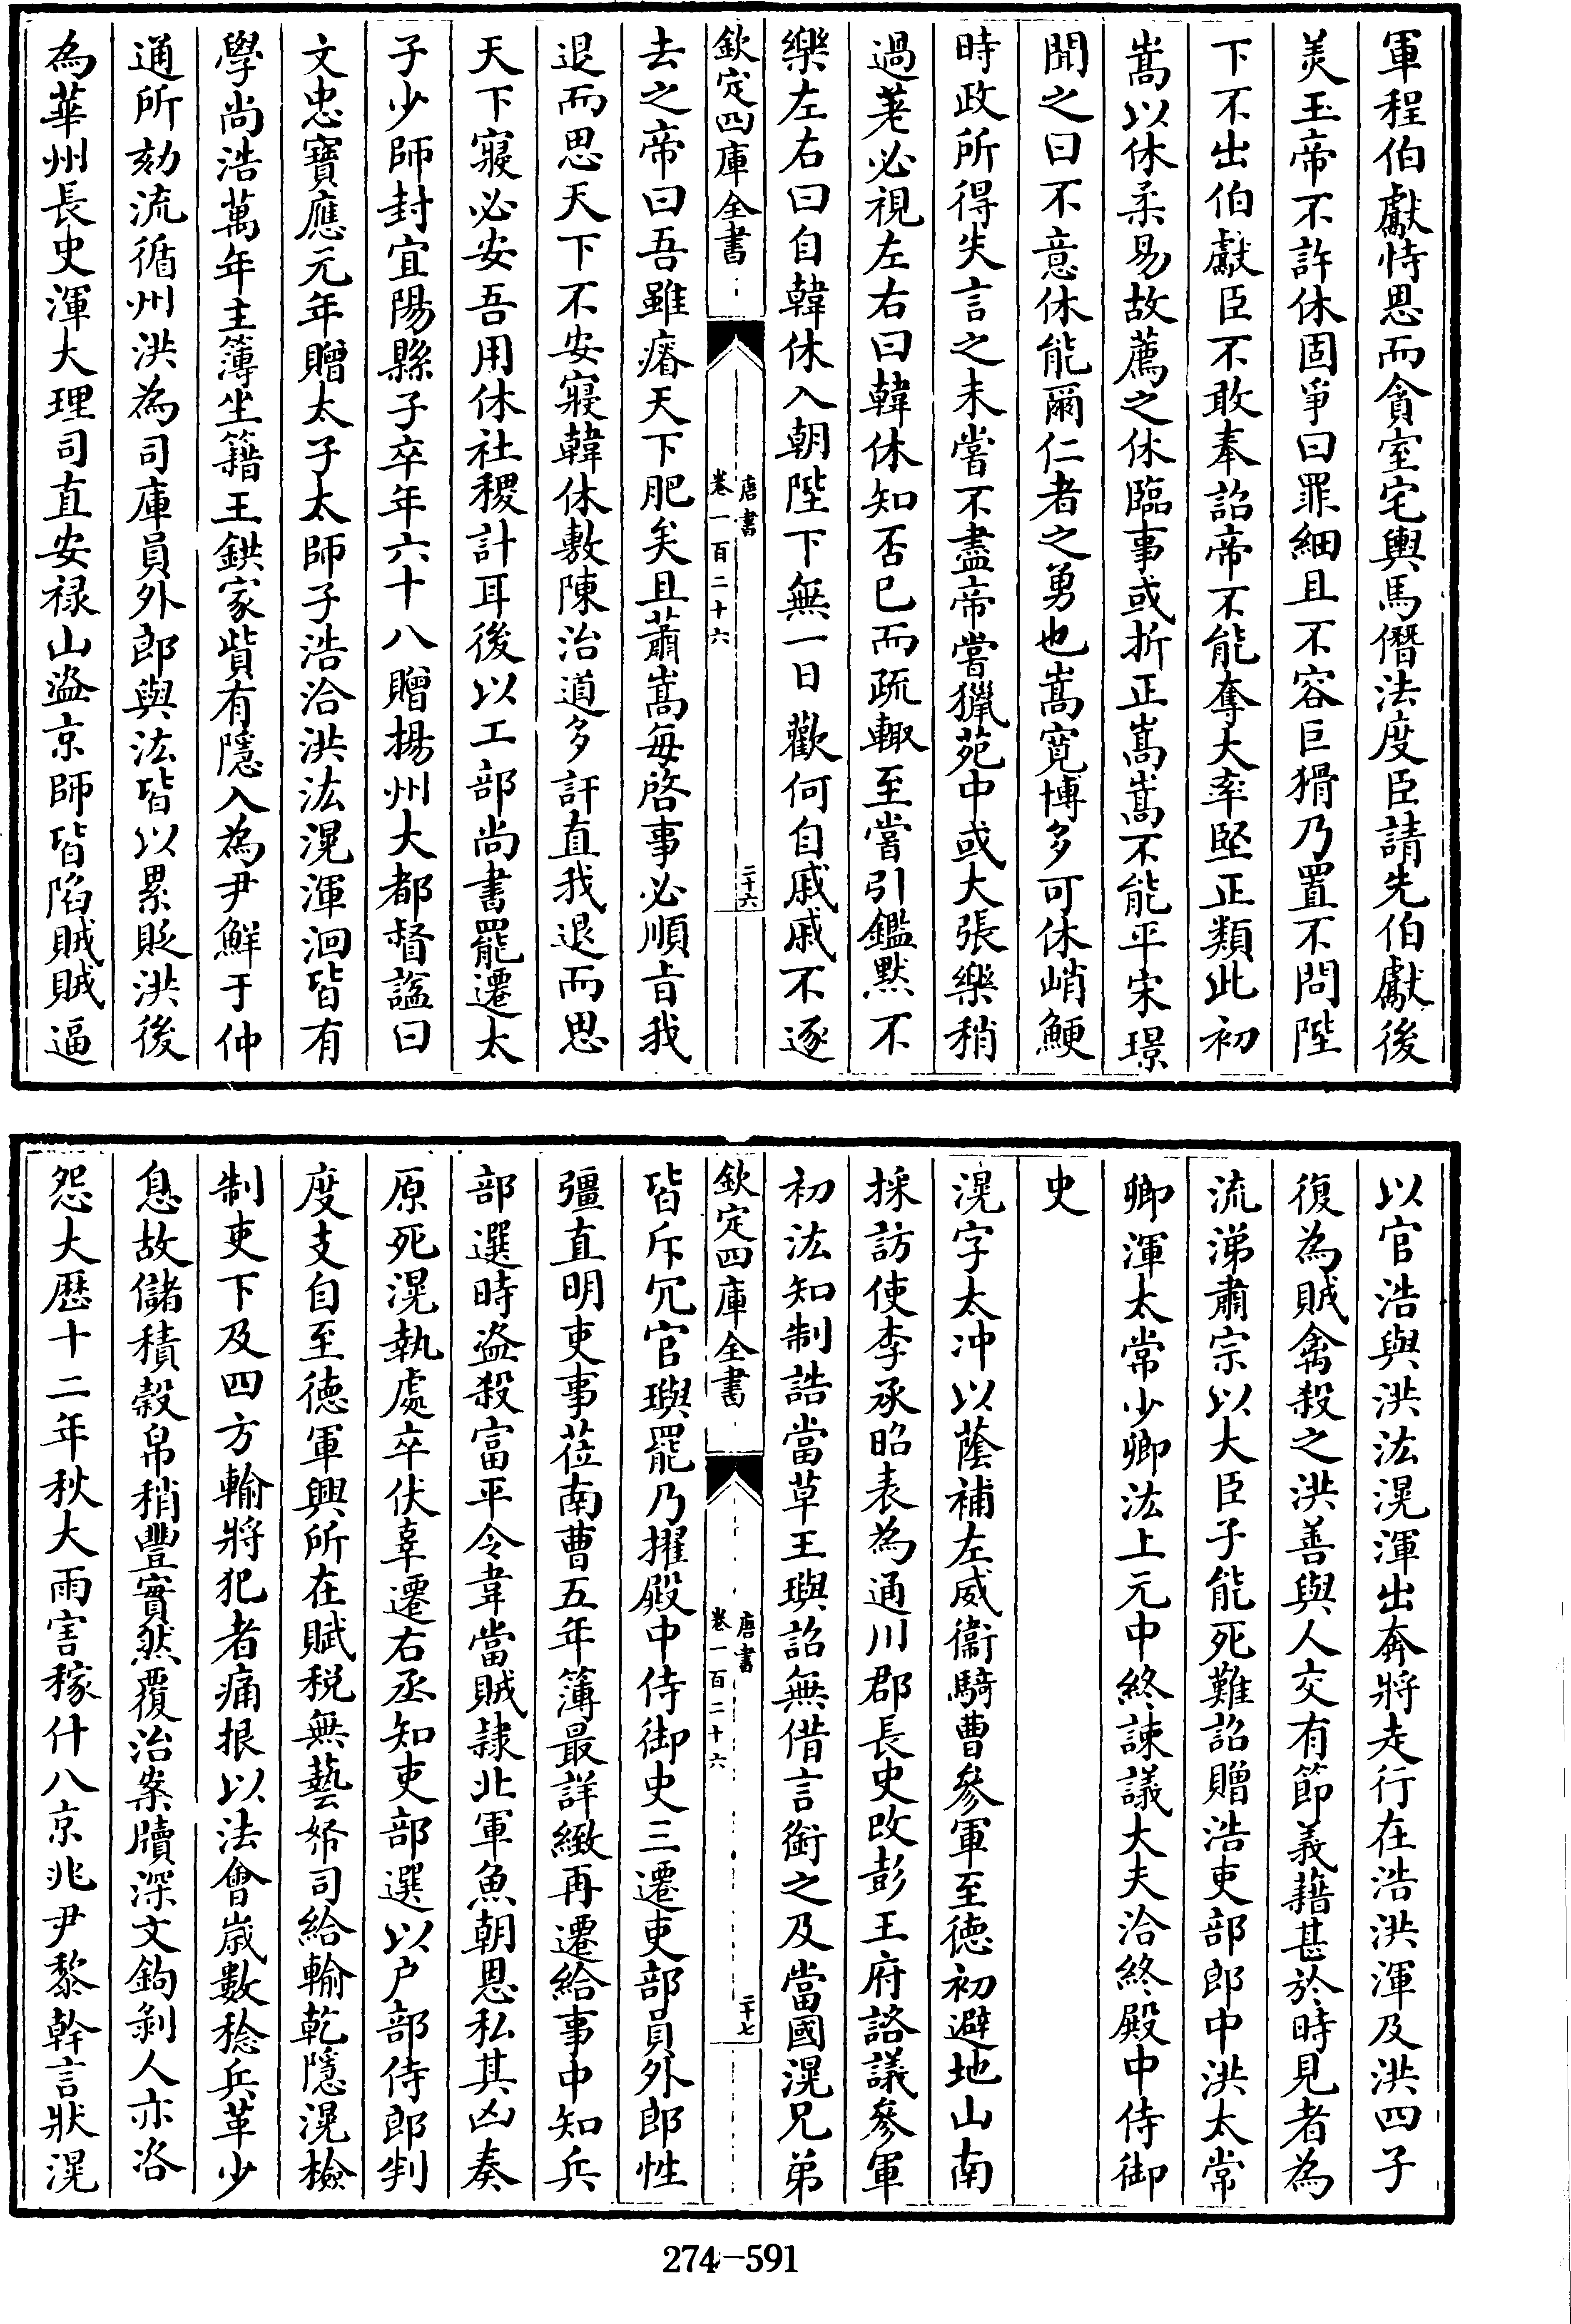 軍程伯獻恃恩而貪室宅輿馬僭法度臣請先伯獻後
美玉帝不許休固爭曰罪細且不容巨猾乃置不問陛
下不出伯獻臣不敢奉詔帝不能奪大率堅正類此初
嵩以休柔易故薦之休臨事或折正嵩嵩不能平宋璟
聞之曰不意休能爾仁者之勇也嵩寛博多可休峭鯁
時政所得失言之未嘗不盡帝嘗獵苑中或大張樂稍
過差必視左右曰韓休知否已而疏輙至嘗引鑑黙不
樂左右曰自韓休入朝陛下無一日歡何自戚戚不逐
欽定四庫全書
唐書
卷一百二十六
二十六
去之帝曰吾雖瘠天下肥矣且蕭嵩每啓事必順旨我
退而思天下不安寢韓休敷陳治道多訐直我退而思
天下寢必安吾用休社稷計耳後以工部尚書罷遷太
子少師封宜陽縣子卒年六十八贈揚州大都督諡曰
文忠寶應元年贈太子太師子浩洽洪汯滉渾洄皆有
學尚浩萬年主簿坐籍王鉷家貲有隱入為尹鮮于仲
通所劾流循州洪為司庫員外郎與汯皆以累貶洪後
為華州長史渾大理司直安禄山盜京師皆陷賊賊逼
以官浩與洪汯滉渾出奔將走行在浩洪渾及洪四子
復為賊禽殺之洪善與人交有節義藉甚於時見者為
流涕肅宗以大臣子能死難詔贈浩吏部郎中洪太常
卿渾太常少卿汯上元中終諫議大夫洽終殿中侍御
史
滉字太冲以蔭補左威衞騎曹參軍至徳初避地山南
採訪使李承昭表為通川郡長史改彭王府諮議參軍
初汯知制誥當草王璵詔無借言銜之及當國滉兄弟
欽定四庫全書
唐書
卷一百二十六
二十七
皆斥冗官璵罷乃擢殿中侍御史三遷吏部員外郎性
彊直明吏事莅南曹五年簿最詳緻再遷給事中知兵
部選時盜殺富平令韋當賊隷北軍魚朝恩私其凶奏
原死滉執處卒伏辜遷右丞知吏部選以户部侍郎判
度支自至徳軍興所在賦税無藝帑司給輸乾隱滉檢
制吏下及四方輸將犯者痛拫以法會嵗數稔兵革少
息故儲積穀帛稍豐實然覆治案牘深文鉤剝人亦咨
怨大厯十二年秋大雨害稼什八京兆尹黎幹言狀滉
274-591